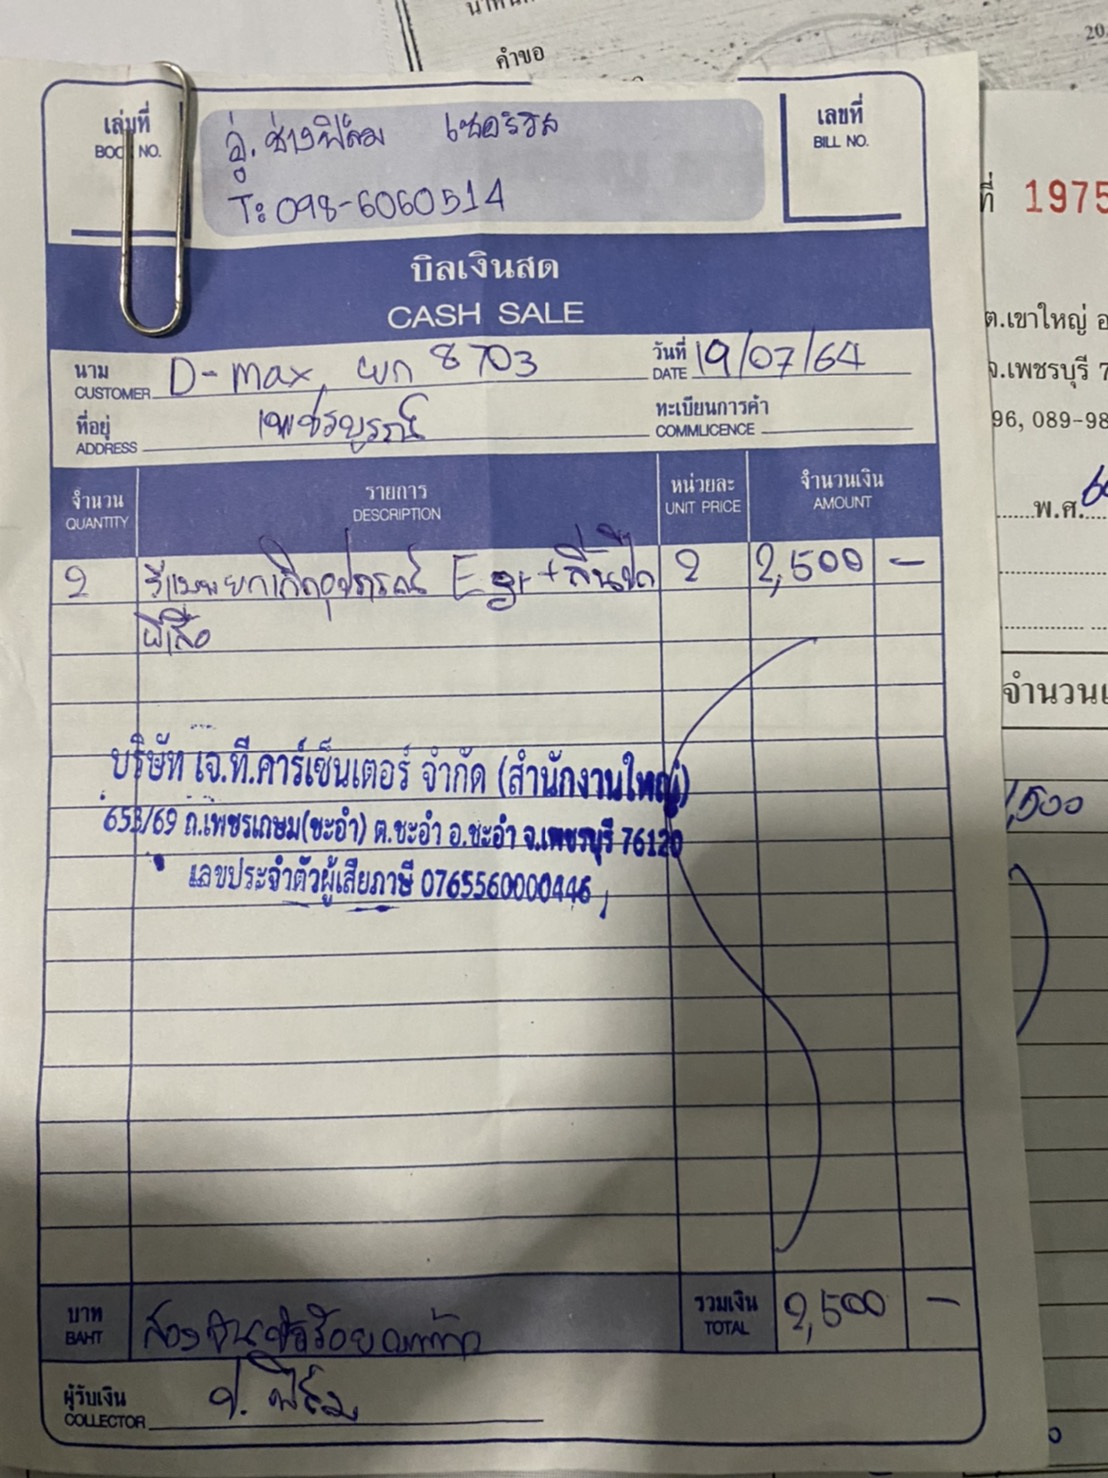 คำขอ
20
เล่มที่
BOOK NO.
อู่.ช่างฟิล์ม เซอร์วิส
T: 098-6060514
เลขที่
BILL NO.
ที่ 1975
บิลเงินสด
CASH SALE
ต.เขาใหญ่ อ
จ.เพชรบุรี 7
96, 089-98
นาม
CUSTOMER D-max, 8703
วันที่
DATE 19/07/64
ที่อยู่
ADDRESS เพชรบูรณ์
ทะเบียนการค้า
COMMLICENCE
พ.ศ.
จำนวน
QUANTITY
รายการ
DESCRIPTION
หน่วยละ
UNIT PRICE
จำนวนเงิน
AMOUNT
2 รีแมพยกเลิกอุปกรณ์ Egr+ลิ้นปีก 2 2,500 -
ผีเสื้อ
บริษัท เจ.ที.คาร์เซ็นเตอร์ จำกัด (สำนักงานใหญ่)
653/69 ถ.เพชรเกษม(ชะอำ) ต.ชะอำ อ.ชะอำ จ.เพชรบุรี 76120
เลขประจำตัวผู้เสียภาษี 0765560000446
บาท
BAHT สองพันห้าร้อยบาทถ้วน
รวมเงิน
TOTAL 2,500 -
ผู้รับเงิน
COLLECTOR ช. ฟิล์ม